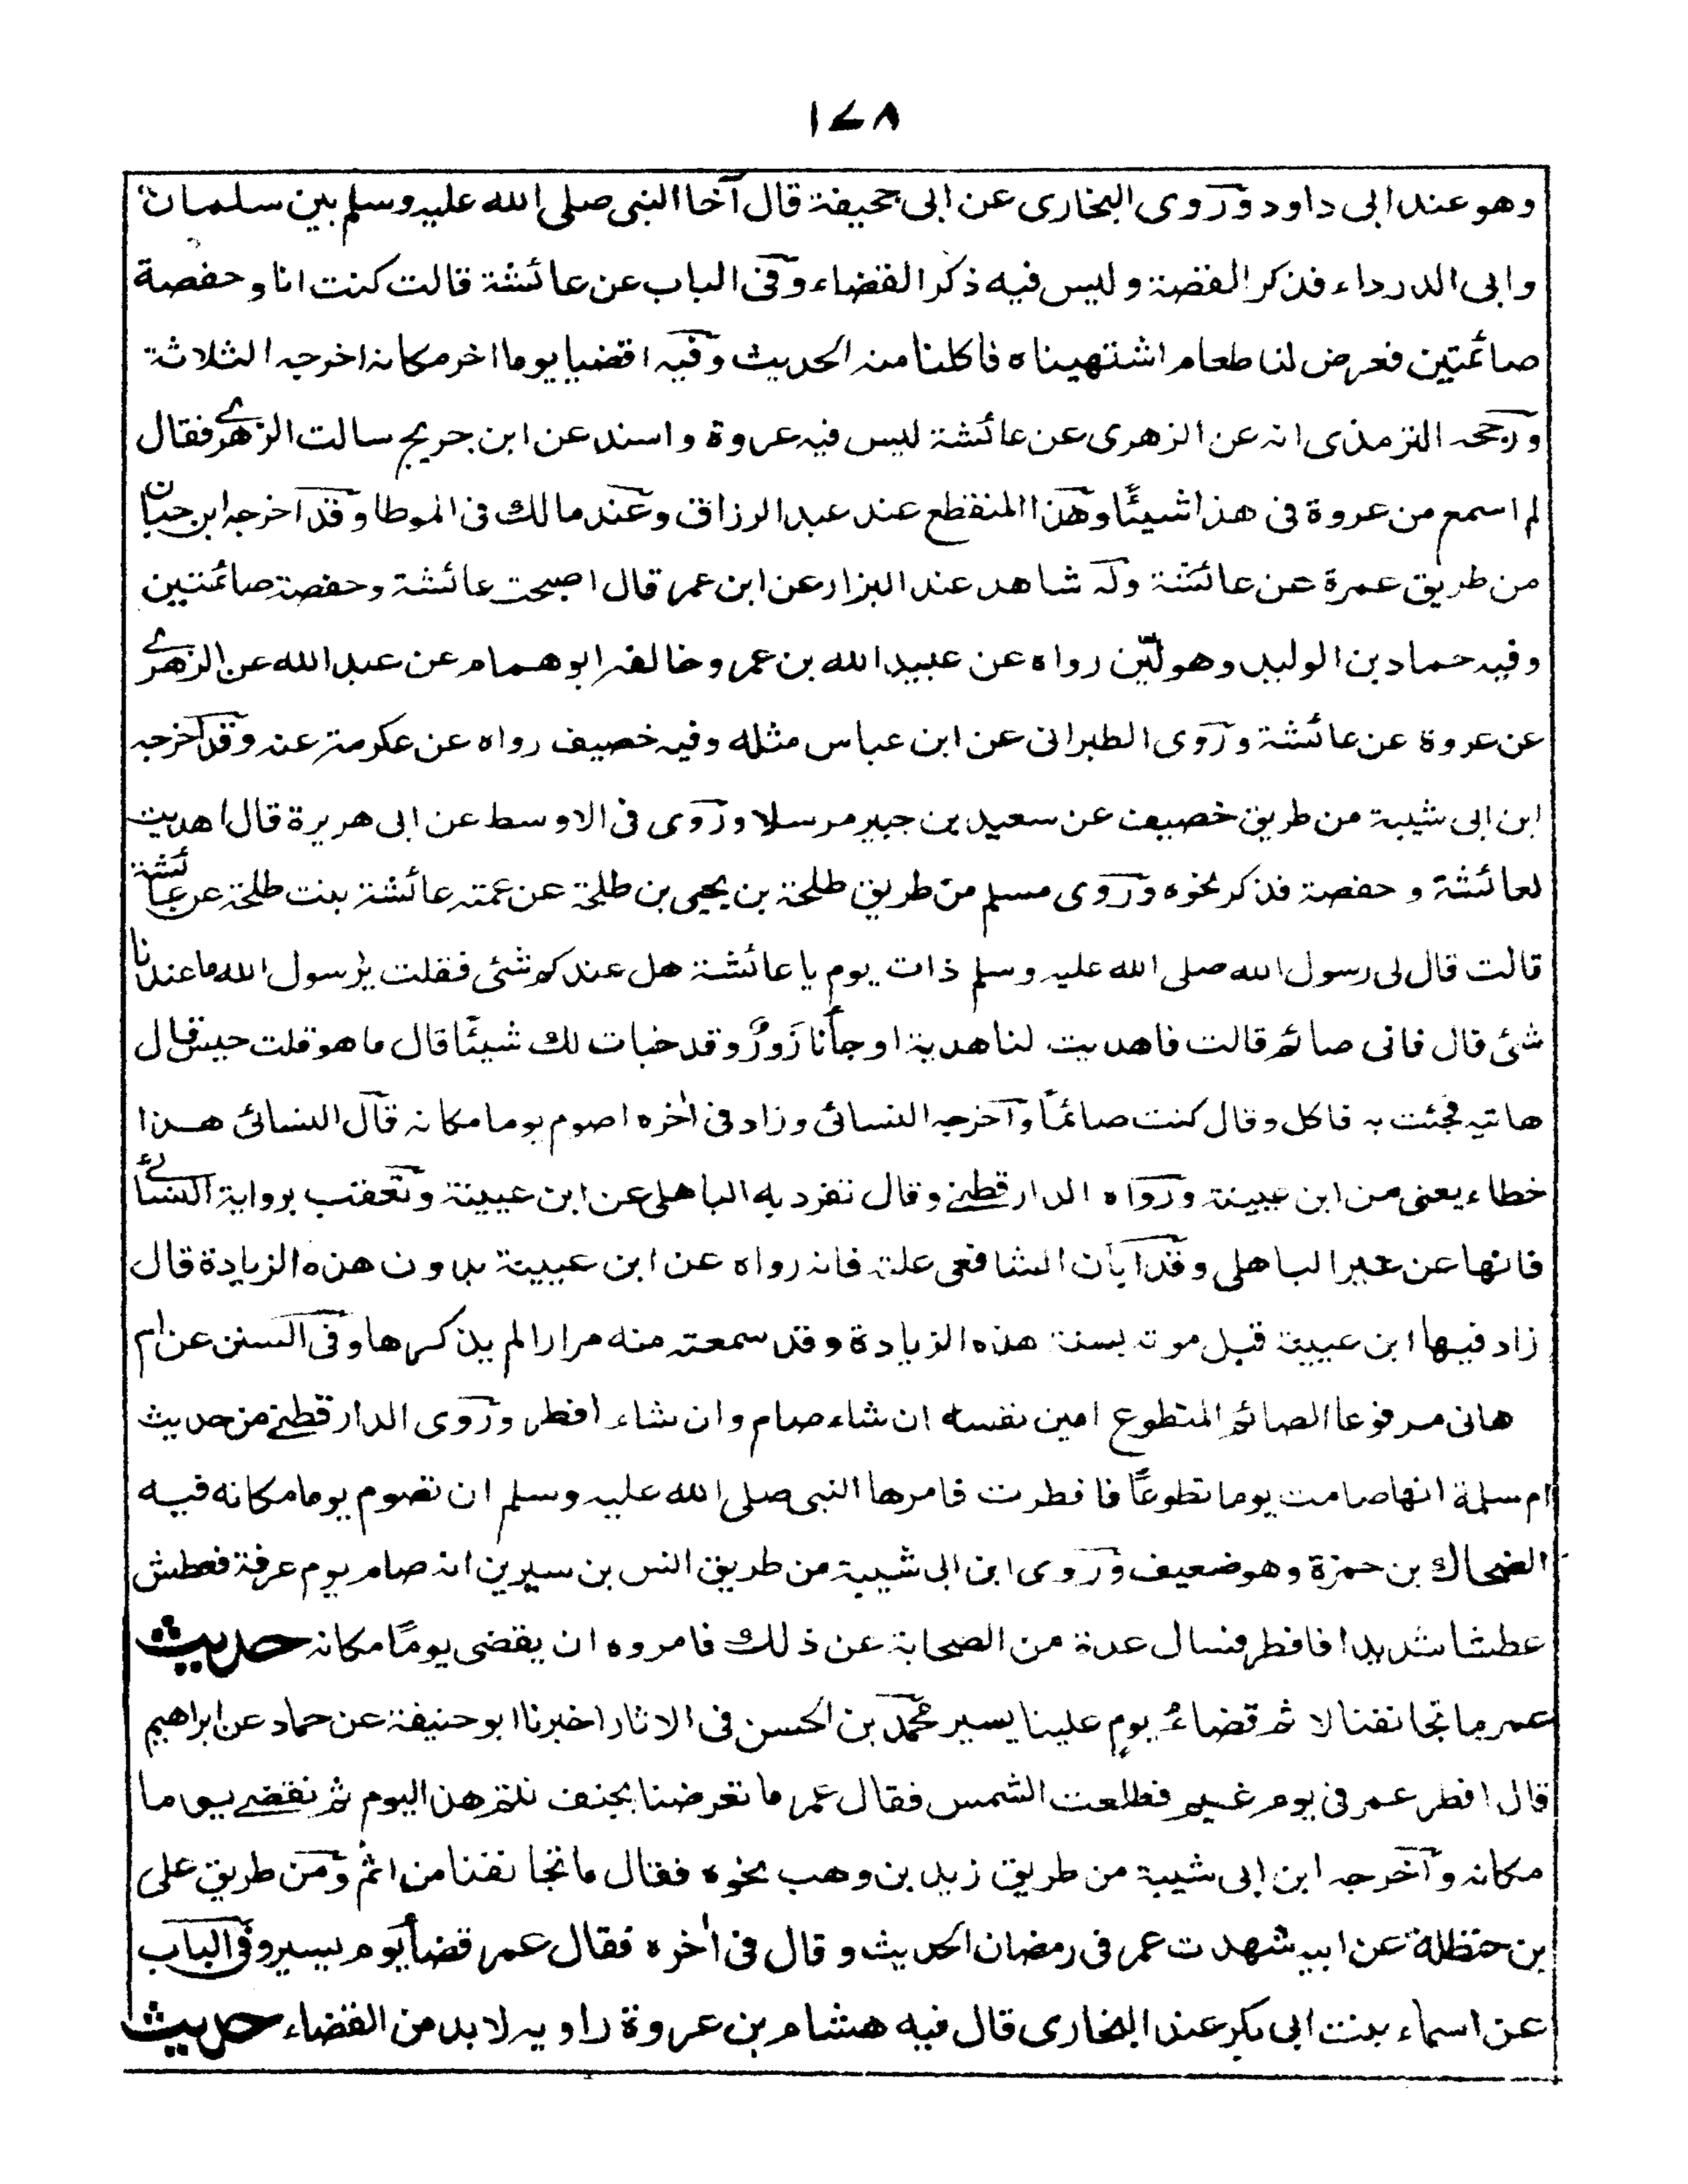 ١٧٨
وهو عند ابى داود وروى البخارى عن ابى جحيفة قال آخا النبى صلى الله عليه وسلم بين سلمان
وابى الدرداء فذكر القصة وليس فيه ذكر القضاء وفى الباب عن عائشة قالت كنت انا وحفصة
صائمتين فعرض لنا طعام اشتهيناه فاكلنا منه الحديث وفيه اقضيا يوما اخر مكانه اخرجه الثلاثة
ورجح الترمذى انه عن الزهرى عن عائشة ليس فيه عروة واسند عن ابن جريج سالت الزهرے فقال
لم اسمع من عروة فى هذا شيئًا وهذا المنقطع عند عبد الرزاق وعند مالك فى الموطا وقد اخرجه ابن حبان
من طريق عمرة عن عائشة وله شاهد عند البزار عن ابن عمر قال اصبحت عائشة وحفصة صائمتين
وفيه حماد بن الوليد وهو ليّن رواه عن عبيد الله بن عمر وخالفه ابو همام عن عبد الله عن الزهرے
عن عروة عن عائشة وروى الطبرانى عن ابن عباس مثله وفيه خصيف رواه عن عكرمة عنه وقد اخرجه
ابن ابى شيبة من طريق خصيف عن سعيد بن جبير مرسلا وروى فى الاوسط عن ابى هريرة قال اهديت
لعائشة و حفصة فذكر نحوه وروى مسلم من طريق طلحة بن يحيى بن طلحة عن عمته عائشة بنت طلحة عن عائشة
قالت قال لى رسول الله صلى الله عليه وسلم ذات يوم يا عائشة هل عندكم شئ فقلت يا رسول الله ما عندنا
شئ قال فانى صائم قالت فاهديت لنا هدية او جأنا زَورٌ وقد خبات لك شيئًا قال ما هو قلت حيس قال
هاتيه فجئت به فاكل وقال كنت صائمًا وآخرجه النسائى وزاد فى اٰخره اصوم يوما مكانه قال النسائى هذا
خطاء يعنى من ابن عيينة ورواه الدارقطنے وقال تفرد به الباهلى عن ابن عيينة وتعقب برواية النسائے
فانها عن غير الباهلى وقد ابان الشافعى علته فانه رواه عن ابن عيينة بدون هذه الزيادة قال
زاد فيها ابن عيينة قبل موته بسنة هذه الزيادة وقد سمعته منه مرارا لم يذكرها وفى السنن عن ام
هانى مرفوعا الصائم المتطوع امين نفسه ان شاء صام وان شاء افطر وروى الدارقطنے من حديث
ام سلمة انها صامت يوما تطوعًا فافطرت فامرها النبى صلى الله عليه وسلم ان تصوم يوما مكانه فيه
الضحاك بن حمزة وهو ضعيف وروى ابن ابى شيبة من طريق انس بن سيرين انه صام يوم عرفة فعطش
عطشا شديدا فافطر فسال عدة من الصحابة عن ذلك فامروه ان يقضى يومًا مكانه حديث
عمر ما تجانفنا لاثم قضاءُ يومٍ علينا يسير محمد بن الحسن فى الاثار اخبرنا ابو حنيفة عن حماد عن ابراهيم
قال افطر عمر فى يوم غيم فطلعت الشمس فقال عمر ما تعرضنا بجنف نتم هذا اليوم ثم نقضے يوما
مكانه وآخرجه ابن ابى شيبة من طريق زيد بن وهب نحوه فقال ما تجانفنا من اثم ومن طريق على
بن حنظلة عن ابيه شهدت عمر فى رمضان الحديث وقال فى اٰخره فقال عمر قضأ يوم يسير وفى الباب
عن اسماء بنت ابى بكر عند البخارى قال فيه هشام بن عروة راويه لا بد من القضاء حديث